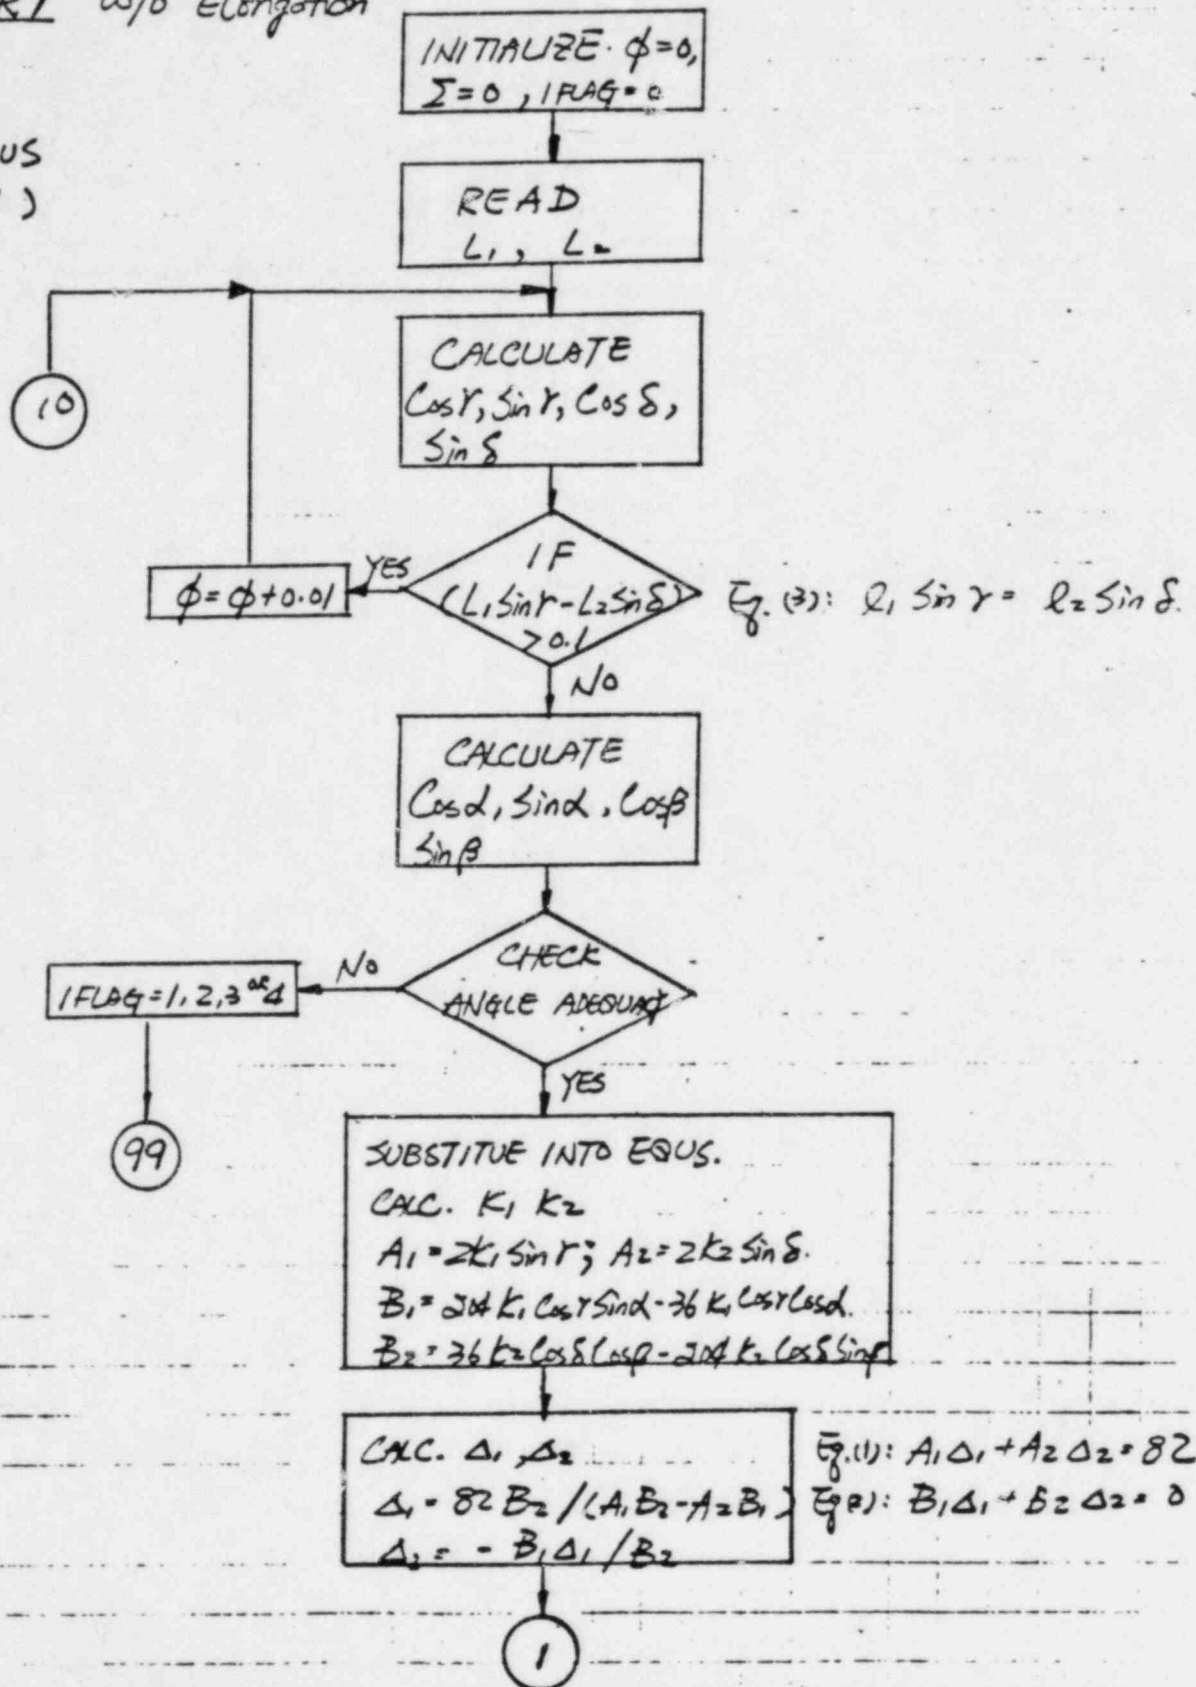 w/o Elongation
INITIALIZE. φ=0,
Σ=0, IFLAG=0
US
)
READ
L₁, L₂
10
CALCULATE
Cosγ, Sinγ, Cos δ,
Sin δ
IF
(L₁Sinγ-L₂Sinδ)
>0.1
YES
φ=φ+0.01
Eq. (3): ℓ₁ Sin γ = ℓ₂ Sin δ.
NO
CALCULATE
Cosα, Sinα, Cosβ
Sinβ
CHECK
ANGLE ADEQUACY
NO
IFLAG=1,2,3 OR 4
99
YES
SUBSTITUE INTO EQUS.
CALC. K₁ K₂
A₁=2K₁Sinγ; A₂=2K₂Sinδ.
B₁=204K₁CosγSinα-36K₁CosγCosα.
B₂=36K₂CosδCosβ-204K₂CosδSinβ
CALC. Δ₁, Δ₂
Δ₁=82B₂/(A₁B₂-A₂B₁)
Δ₂=-B₁Δ₁/B₂
Eq.(1): A₁Δ₁+A₂Δ₂=82
Eq(2): B₁Δ₁+B₂Δ₂=0
1